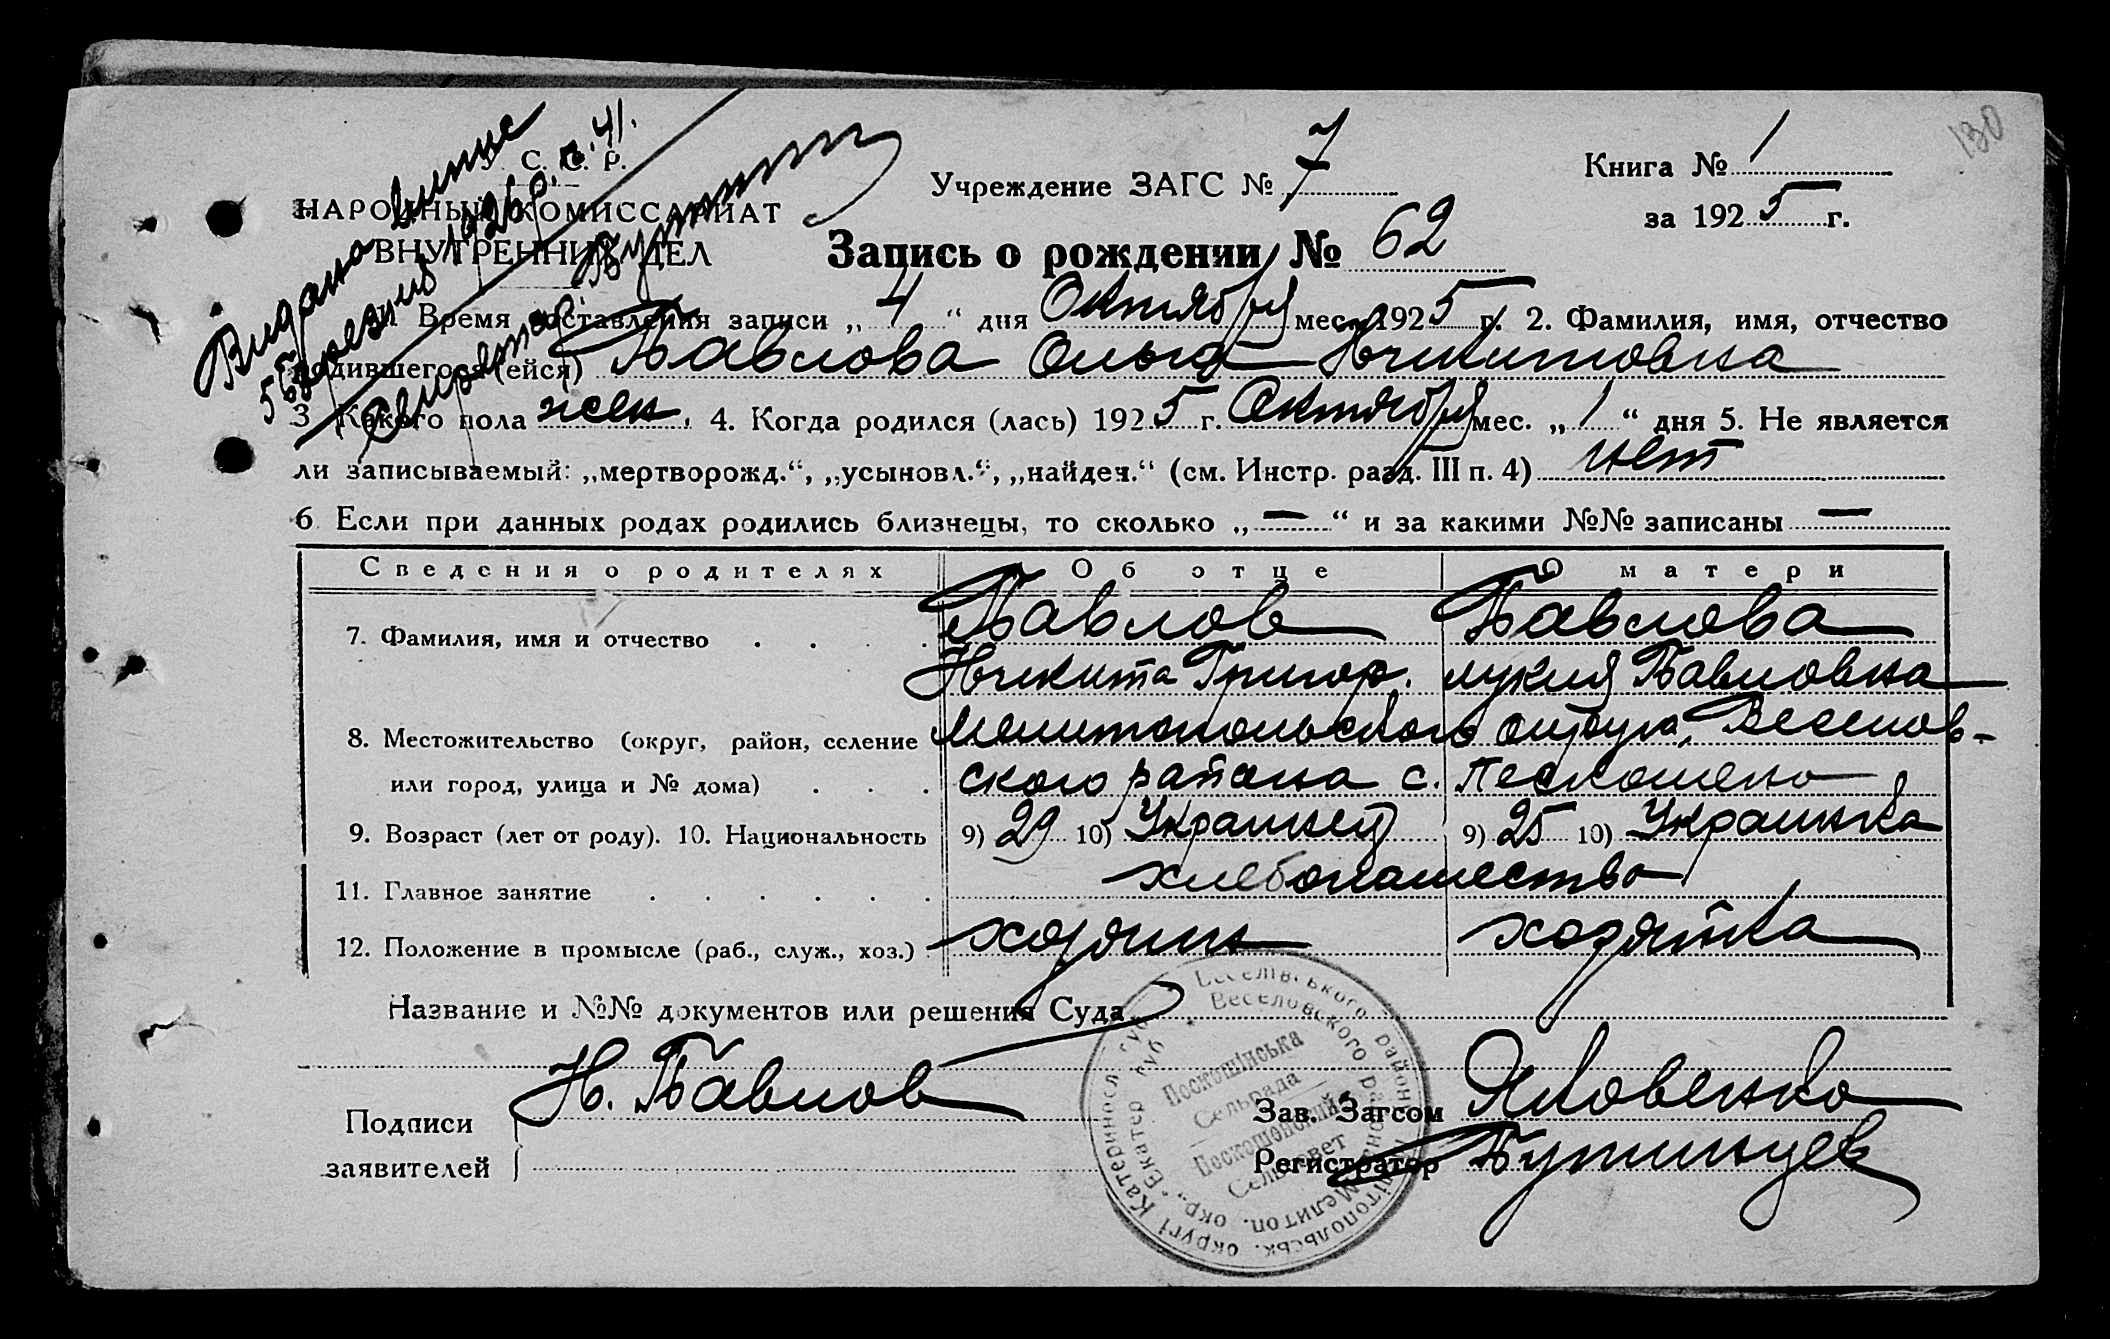 130
Видана випис
5 березня 1926 р. п. 41.
Секретар:
С. С. Р.
НАРОДНЫЙ КОМИССАРИАТ
ВНУТРЕННИХ ДЕЛ
Учреждение ЗАГС № 7
Книга № 1
за 1925 г.
Запись о рождении № 62
1 Время составления записи „ 4 “ дня Октября мес. 1925 г. 2. Фамилия, имя, отчество
родившегося (ейся) Павлова Ольга Никитовна
3 Какого пола жен. 4. Когда родился (лась) 1925 г. Октября мес. „ 1 “ дня 5. Не является
ли записываемый: „мертворожд.“, „усыновл.“, „найден.“ (см. Инстр. разд. III п. 4) нет
6 Если при данных родах родились близнецы, то сколько „ — “ и за какими №№ записаны —
Сведения о родителях Об отце О матери
7. Фамилия, имя и отчество . . . . Павлов Павлова
Никита Григор. Лукия Павловна
8. Местожительство (округ, район, селение Мелитопольского округа, Веселов-
или город, улица и № дома) . . . ского района с. Пескошено
9. Возраст (лет от роду). 10. Национальность 9) 29 10) Украинец 9) 25 10) Украинка
11. Главное занятие . . . . . . хлебопашество
12. Положение в промысле (раб., служ., хоз.) . хозяин хозяйка
Название и №№ документов или решения Суда
Подписи
заявителей
Н. Павлов
Зав. Загсом Яковенко
Регистратор
Веселівського район. Мелітопольськ. округі Катериносл. губ.
Веселовского район. Мелитоп. окр., Екатер губ
Пескошінська
Сельрада
Пескошенский
Сельсовет